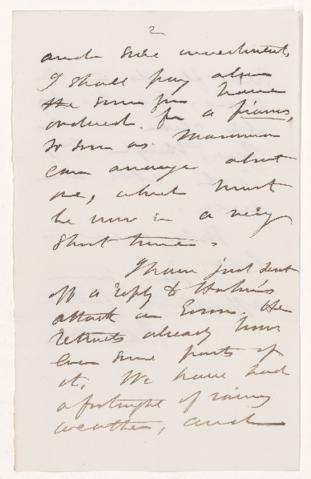 2
and sure investment.
I shall pay also
the sum you have
ordered for a piano,
so soon as Mamma
can arrange about
one, which must
be now in a very
short time.
I have just sent
off a reply to
attack on He
retracts already
even some parts of
it. We have had
a fortnight of rainy
weather, and